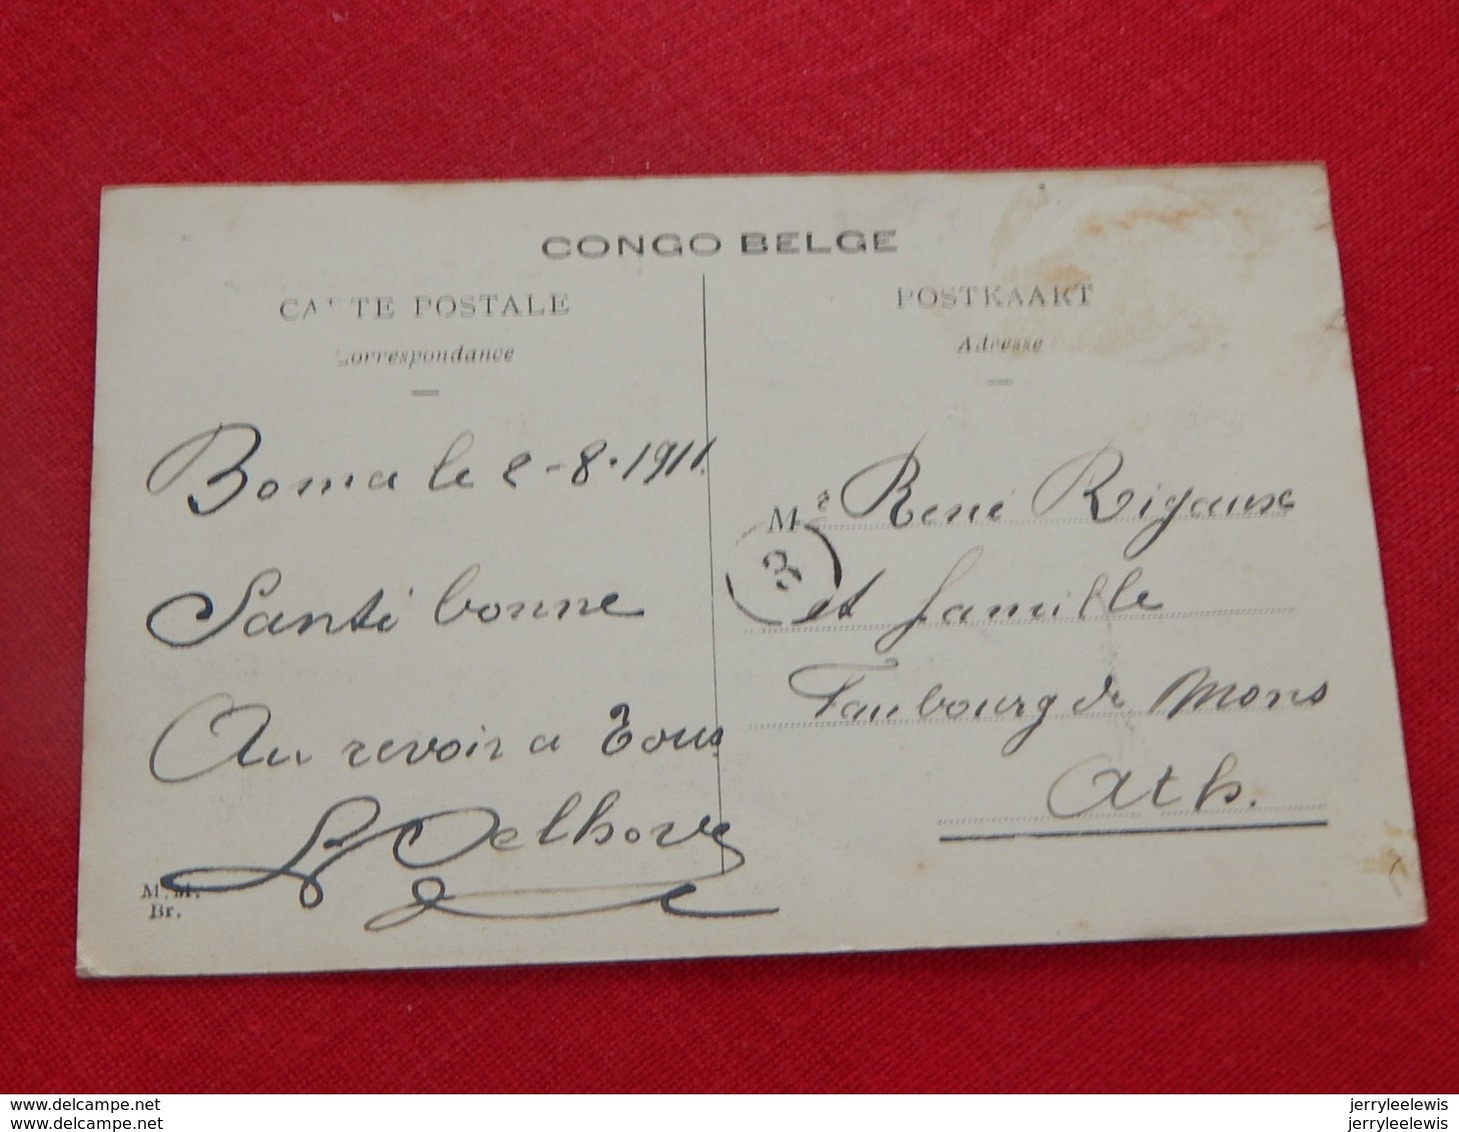 CONGO BELGE
CARTE POSTALE
Correspondance
POSTKAART
Adresse
Boma le 2-8-1911.
Santé bonne
Au revoir a Tous
Delhove
M. M.
Br.
Mr René Rigaux
3
et famille
Faubourg de Mons
Ath.
delcampe.net
jerryleelewis
delcampe.net
jerryleelewis